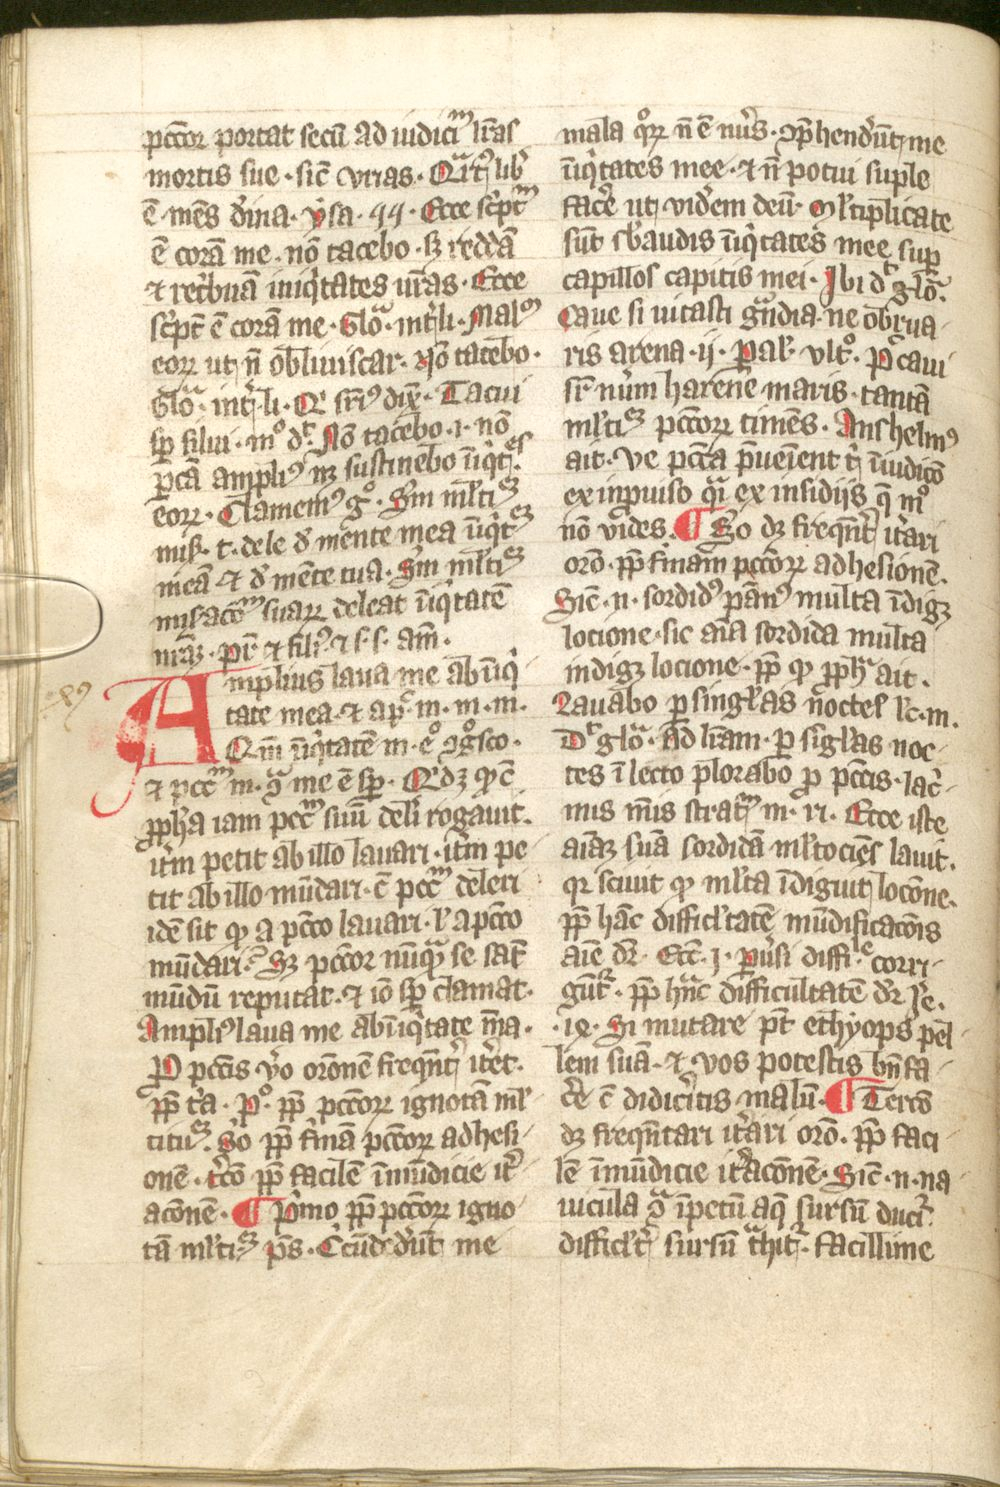 pccor portat secu ad iudiciu lras
mortis sue · sic vrias · Qrt9 lib
e · mes diina · ysa · 44 · Ecce scptm
e cora me · no tacebo · sz redda
& retbua iniqtates uras · Ecce
scpt e cora me · Gloa · intli · Mal9
eorz ut n obliuiscar · No tacebo ·
Gloa · intli · Qr srius dix · Tacui
sp silui · mo dt · No tacebo · i · no
pca ampli9 nz sustinebo iiqtes
eorz · Clamem9 go · Sm mltiz
mis · t · dele d mente mea iiqtez
mea & d mete tua · Sm mltiz
misacem suarz deleat iiqtate
nraz · pr & fili9 & s · s · am ·
Amplius laua me ab iiqi
tate mea · & a pc m · m · m ·
Qm iiqtate m · eo ogosco ·
& pccm m · ga me e sp · Qrdz qp e
ppha iam pccm suu deli rogauit ·
itm petit ab illo lauari · itm pe
tit ab illo mudari · e pccm deleri
ide sit qp a pcco lauari · l a pcco
mudari · Sz pccor nuqa se sat
mudu reputat · & io sp clamat ·
Ampli9 laua me ab iiqtate ma ·
P pccis vo orone freqnt itet ·
pp tia · Po · pp pccorz ignota ml
tituz So pp fima pccorz adhesi
one · tco pp facile imudicie it
acone · ¶ Pimo pp pccorz igno
ta mltiz ps · Ccudederut me
mala qorz n e nus · Ophenderut me
iiqtates mee · & n potui suple
face ut viderem deu · Mltiplicate
sut sbaudis iiqtates mee sup
capillos capitis mei · Ibi dt gloa ·
Caue si uitasti gndia · ne obrua
ris arena · ij · Par · vlto · Pccaui
sr num harene maris · tanta
mltiz pccorz times · Anshelm9
ait · Ve pccta pueient ti iiudico
ex inpuiso qai ex insidijs q mo
non vides · ¶ So dz freqnt itari
oro · pp finam pccorz adhesione ·
Sic · n · sordid9 pan9 multa idigz
locione · sic aia sordida multa
indigz locione · pp qp ppha ait ·
Lauabo p singlas noctes lc · m ·
Dt gloa · Ad lram · p siglas noc
tes i lecto plorabo p pccis · laci
mis mis stratu m · ri · Ecce iste
aiaz sua sordida mltocies lauit ·
qr sciuit qp mlta idiguit locone ·
pp hac difficltate mudificacois
aie dr · Ecc · j · puersi diffile corri
gutr · pp hnc difficultate dr Ie ·
· ix · Si mutare pt ethyops pel
lem sua · & vos potestis bnfa
ce c didicitis malu · ¶ Tercio
dz freqntari itari oro · pp faci
le imudicie itacone · Sic · n · na
uicula o ipetu aq sursu ducit
difficlt sursu thitr · facillime